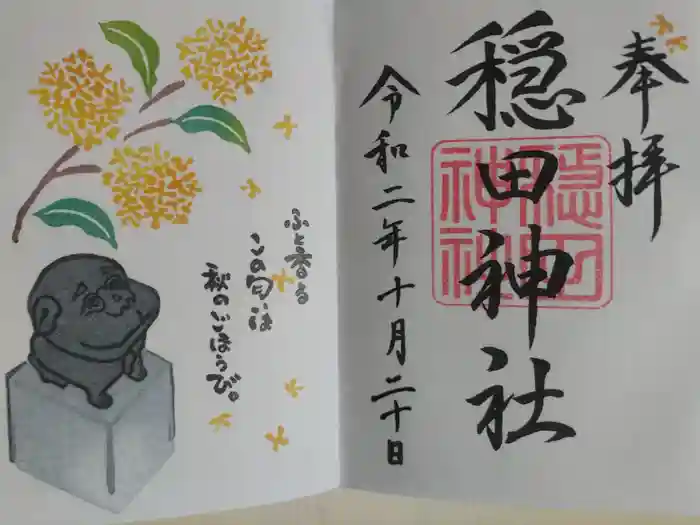 奉拝
穏田神社
穏田
神社
令和二年十月二十日
ふと香る
この匂いは
秋のごほうび。